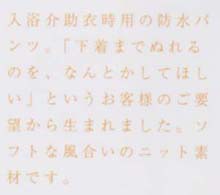 入浴介助衣時用の防水パ
ンツ。「下着までぬれる
のを、なんとかしてほし
い」というお客様のご要
望から生まれました。ソ
フトな風合いのニット素
材です。